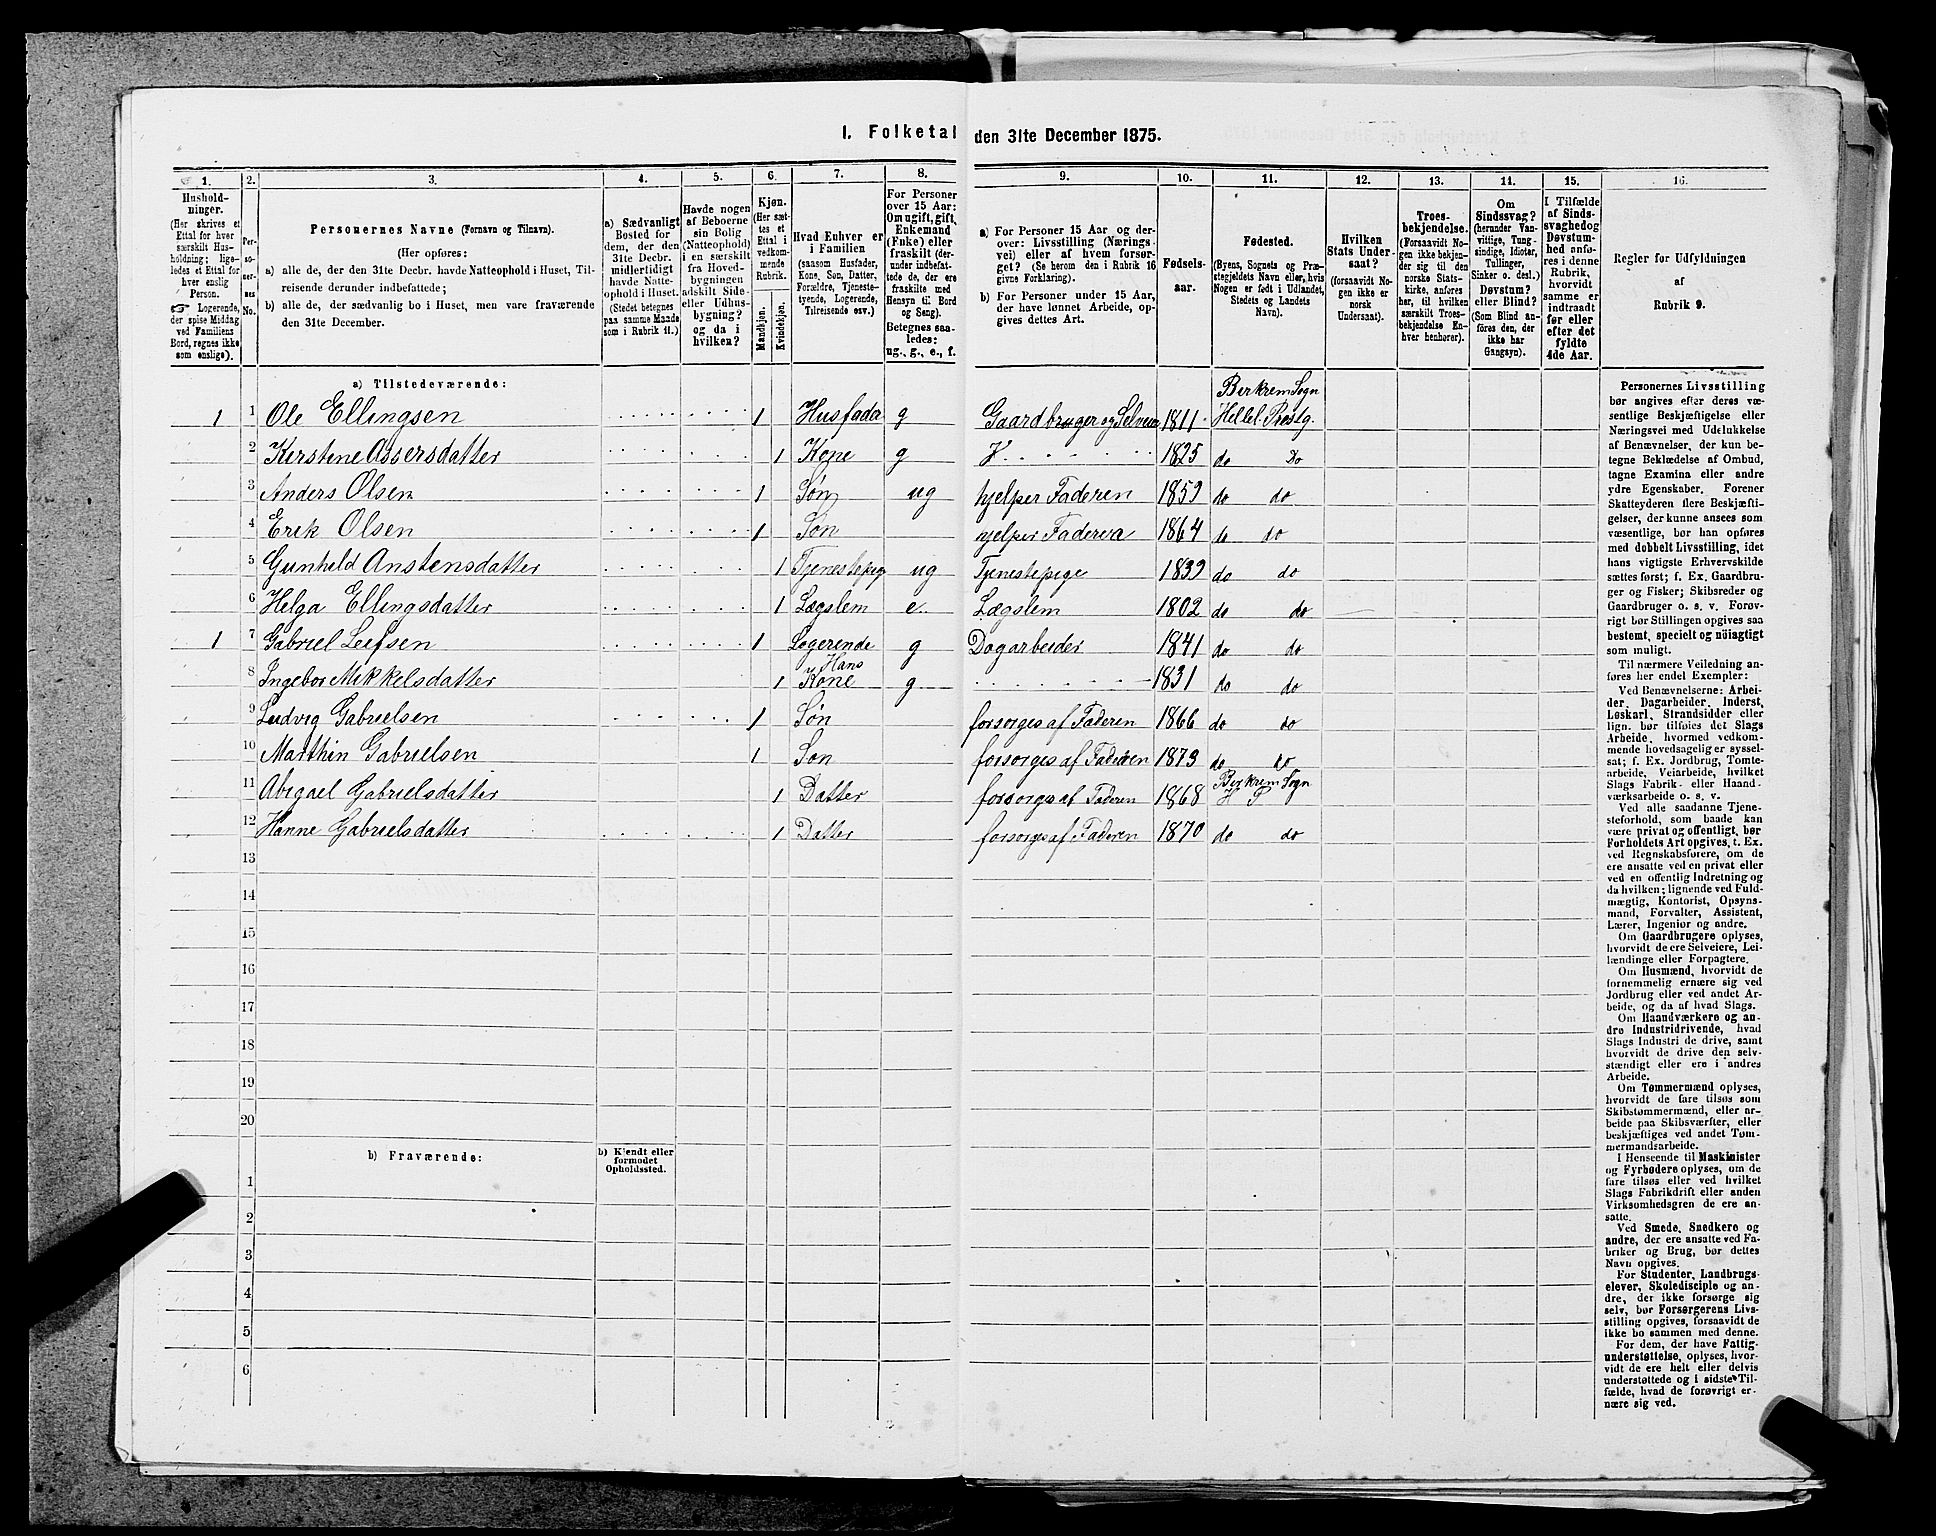 I. Folketal den 31te December 1875.
1. 2. 3. 4. 5. 6. 7. 8. 9. 10. 11. 12. 13. 14. 15. 16.
Hushold-
ninger.
(Her skrives et
Ettal for hver
særskilt Hus-
holdning; lige-
ledes et Ettal for
hver enslig
Person.
☞ Logerende,
der spise Middag
ved Familiens
Bord, regnes ikke
som enslige).
Per-
so-
ner-
nes
No.
Personernes Navne (Fornavn og Tilnavn).
(Her opføres:
a) alle de, der den 31te Decbr. havde Natteophold i Huset, Til-
reisende derunder indbefattede;
b) alle de, der sædvanlig bo i Huset, men vare fraværende
den 31te December.
a) Sædvanligt
Bosted for
dem, der den
31te Decbr.
midlertidigt
havde Natte-
ophold i Huset.
(Stedet betegnes
paa samme Maade
som i Rubrik 11.)
Havde nogen
af Beboerne
sin Bolig
(Natteophold)
i en særskilt
fra Hoved-
bygningen
adskilt Side-
eller Udhus-
bygning?
og da i
hvilken?
Kjøn.
(Her sæt-
tes et
Ettal i
vedkom-
mende
Rubrik.
Mandkjøn.
Kvindekjøn.
Hvad Enhver er
i Familien
(saasom Husfader,
Kone, Søn, Datter,
Forældre, Tjeneste-
tyende, Logerende,
Tilreisende osv.)
For Personer
over 15 Aar:
Om ugift, gift,
Enkemand
(Enke) eller
fraskilt (der-
under indbefat-
tede de, der ere
fraskilte med
Hensyn til Bord
og Seng).
Betegnes saa-
ledes:
ug., g., e., f.
a) For Personer 15 Aar og der-
over: Livsstilling (Nærings-
vei) eller af hvem forsør-
get? (Se herom den i Rubrik 16
givne Forklaring).
b) For Personer under 15 Aar,
der have lønnet Arbeide, op-
gives dettes Art.
Fødsels-
aar.
Fødested.
(Byens, Sognets og Præ-
stegjeldets Navn eller, hvis
Nogen er født i Udlandet,
Stedets og Landets
Navn).
Hvilken
Stats Under-
saat?
(forsaavidt No-
gen ikke er
norsk
Undersaat).
Troes-
bekjendelse.
(Forsaavidt No-
gen ikke bekjen-
der sig til den
norske Stats-
kirke, anføres
her, til hvilken
særskilt Troes-
bekjendelse En-
hver henhører).
Om
Sindssvag?
(herunder Van-
vittige, Tung-
sindige, Idioter,
Tullinger,
Sinker o. desl.)
Døvstum?
eller Blind?
(Som Blind an-
føres den, der
ikke har
Gangsyn).
I Tilfælde
af Sinds-
svaghed og
Døvstum-
hed anfø-
res i denne
Rubrik,
hvorvidt
samme er
indtraadt
før eller
efter det
fyldte
4de Aar.
Regler for Udfyldningen
af
Rubrik 9.
a) Tilstedeværende:
Birkrem Sogn
1 1 Ole Ellingsen 1 Husfader g Gaardbruger og Selveier 1811 Hellel. Præstg.
2 Kirstene Assersdatter 1 Kone g H 1825 do Do
3 Anders Olsen 1 Søn ug hjelper Faderen 1859 do do
4 Erik Olsen 1 Søn hjelper Faderen 1864 do do
5 Gunhild Anstensdatter 1 Tjenestepig ug Tjenestepige 1839 do do
6 Helga Ellingsdatter 1 Lægslem e. Lægslem 1802 do do
1 7 Gabriel Leifsen 1 Logerende g Dagarbeider 1841 do do
8 Ingebor Mikkelsdatter 1 Hans Kone g 1831 do do
9 Ludvig Gabrielsen 1 Søn forsorges af Faderen 1866 do do
10 Marthin Gabrielsen 1 Søn forsorges af Faderen 1873 do do
Birkrem Sogn
11 Abigael Gabrielsdatter 1 Datter forsorges af Faderen 1868 H P
12 Hanne Gabrielsdatter 1 Datter forsorges af Faderen 1870 do do
13
14
15
16
17
18
19
20
b) Fraværende:
b) Kjendt eller
formodet
Opholdssted.
1
2
3
4
5
6
Personernes Livsstilling
bør angives efter deres væ-
sentlige Beskjæftigelse eller
Næringsvei med Udelukkelse
af Benævnelser, der kun be-
tegne Beklædelse af Ombud,
tagne Examina eller andre
ydre Egenskaber. Forener
Skatteyderen flere Beskjæfti-
gelser, der kunne ansees som
væsentlige, bør han opføres
med dobbelt Livsstilling, idet
hans vigtigste Erhvervskilde
sættes først; f. Ex. Gaardbru-
ger og Fisker; Skibsreder og
Gaardbruger o. s. v. Forøv-
rigt bør Stillingen opgives saa
bestemt, specielt og nøiagtigt
som muligt.
Til nærmere Veiledning an-
føres her endel Exempler:
Ved Benævnelserne: Arbei-
der, Dagarbeider, Inderst,
Løskarl, Strandsidder eller
lign. bør tilføies det Slags
Arbeide, hvormed vedkom-
mende hovedsagelig er syssel-
sat; f. Ex. Jordbrug, Tomte-
arbeide, Veiarbeide, hvilket
Slags Fabrik- eller Haand-
værksarbeide o. s. v.
Ved alle saadanne Tjene-
steforhold, som baade kan
være privat og offentligt, bør
Forholdets Art opgives, t. Ex.
ved Regnskabsførere, om de
ere ansatte ved en privat eller
ved en offentlig Indretning og
da hvilken; lignende ved Fuld-
mægtig, Kontorist, Opsyns-
mand, Forvalter, Assistent,
Lærer, Ingeniør og andre.
Om Gaardbrugere oplyses,
hvorvidt de ere Selveiere, Lei-
lændinge eller Forpagtere.
Om Husmænd, hvorvidt de
fornemmelig ernære sig ved
Jordbrug eller ved andet Ar-
beide, og da af hvad Slags.
Om Haandværkere og an-
dre Industridrivende, hvad
Slags Industri de drive, samt
hvorvidt de drive den selv-
stændigt eller ere i andres
Arbeide.
Om Tømmermænd oplyses,
hvorvidt de fare tilsøs som
Skibstømmermænd, eller ar-
beide paa Skibsværfter, eller
beskjæftiges ved andet Tøm-
mermandsarbeide.
I Henseende til Maskinister
og Fyrbødere oplyses, om de
fare tilsøs eller ved hvilket
Slags Fabrikdrift eller anden
Virksomhedsgren de ere an-
satte.
Ved Smede, Snedkere og
andre, der ere ansatte ved Fa-
briker og Brug, bør dettes
Navn opgives.
For Studenter, Landbrugs-
elever, Skoledisciple og an-
dre, der ikke forsørge sig
selv, bør Forsørgerens Livs-
stilling opgives, forsaavidt de
ikke bo sammen med denne.
For dem, der have Fattig-
understøttelse, oplyses, hvor-
vidt de ere helt eller delvis
understøttede og i sidste Til-
fælde, hvad de forøvrigt er-
nære sig ved.